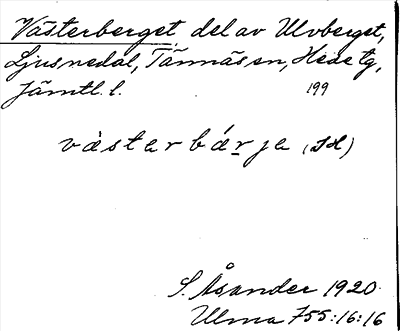 Västerberget, del av Ulvberget,
Ljusnedal, Tännäs sn, Hede tg,
Jämtl. l. 199
västarbárja (SH)
S. Åsander 1920
Ulma 755:16:16